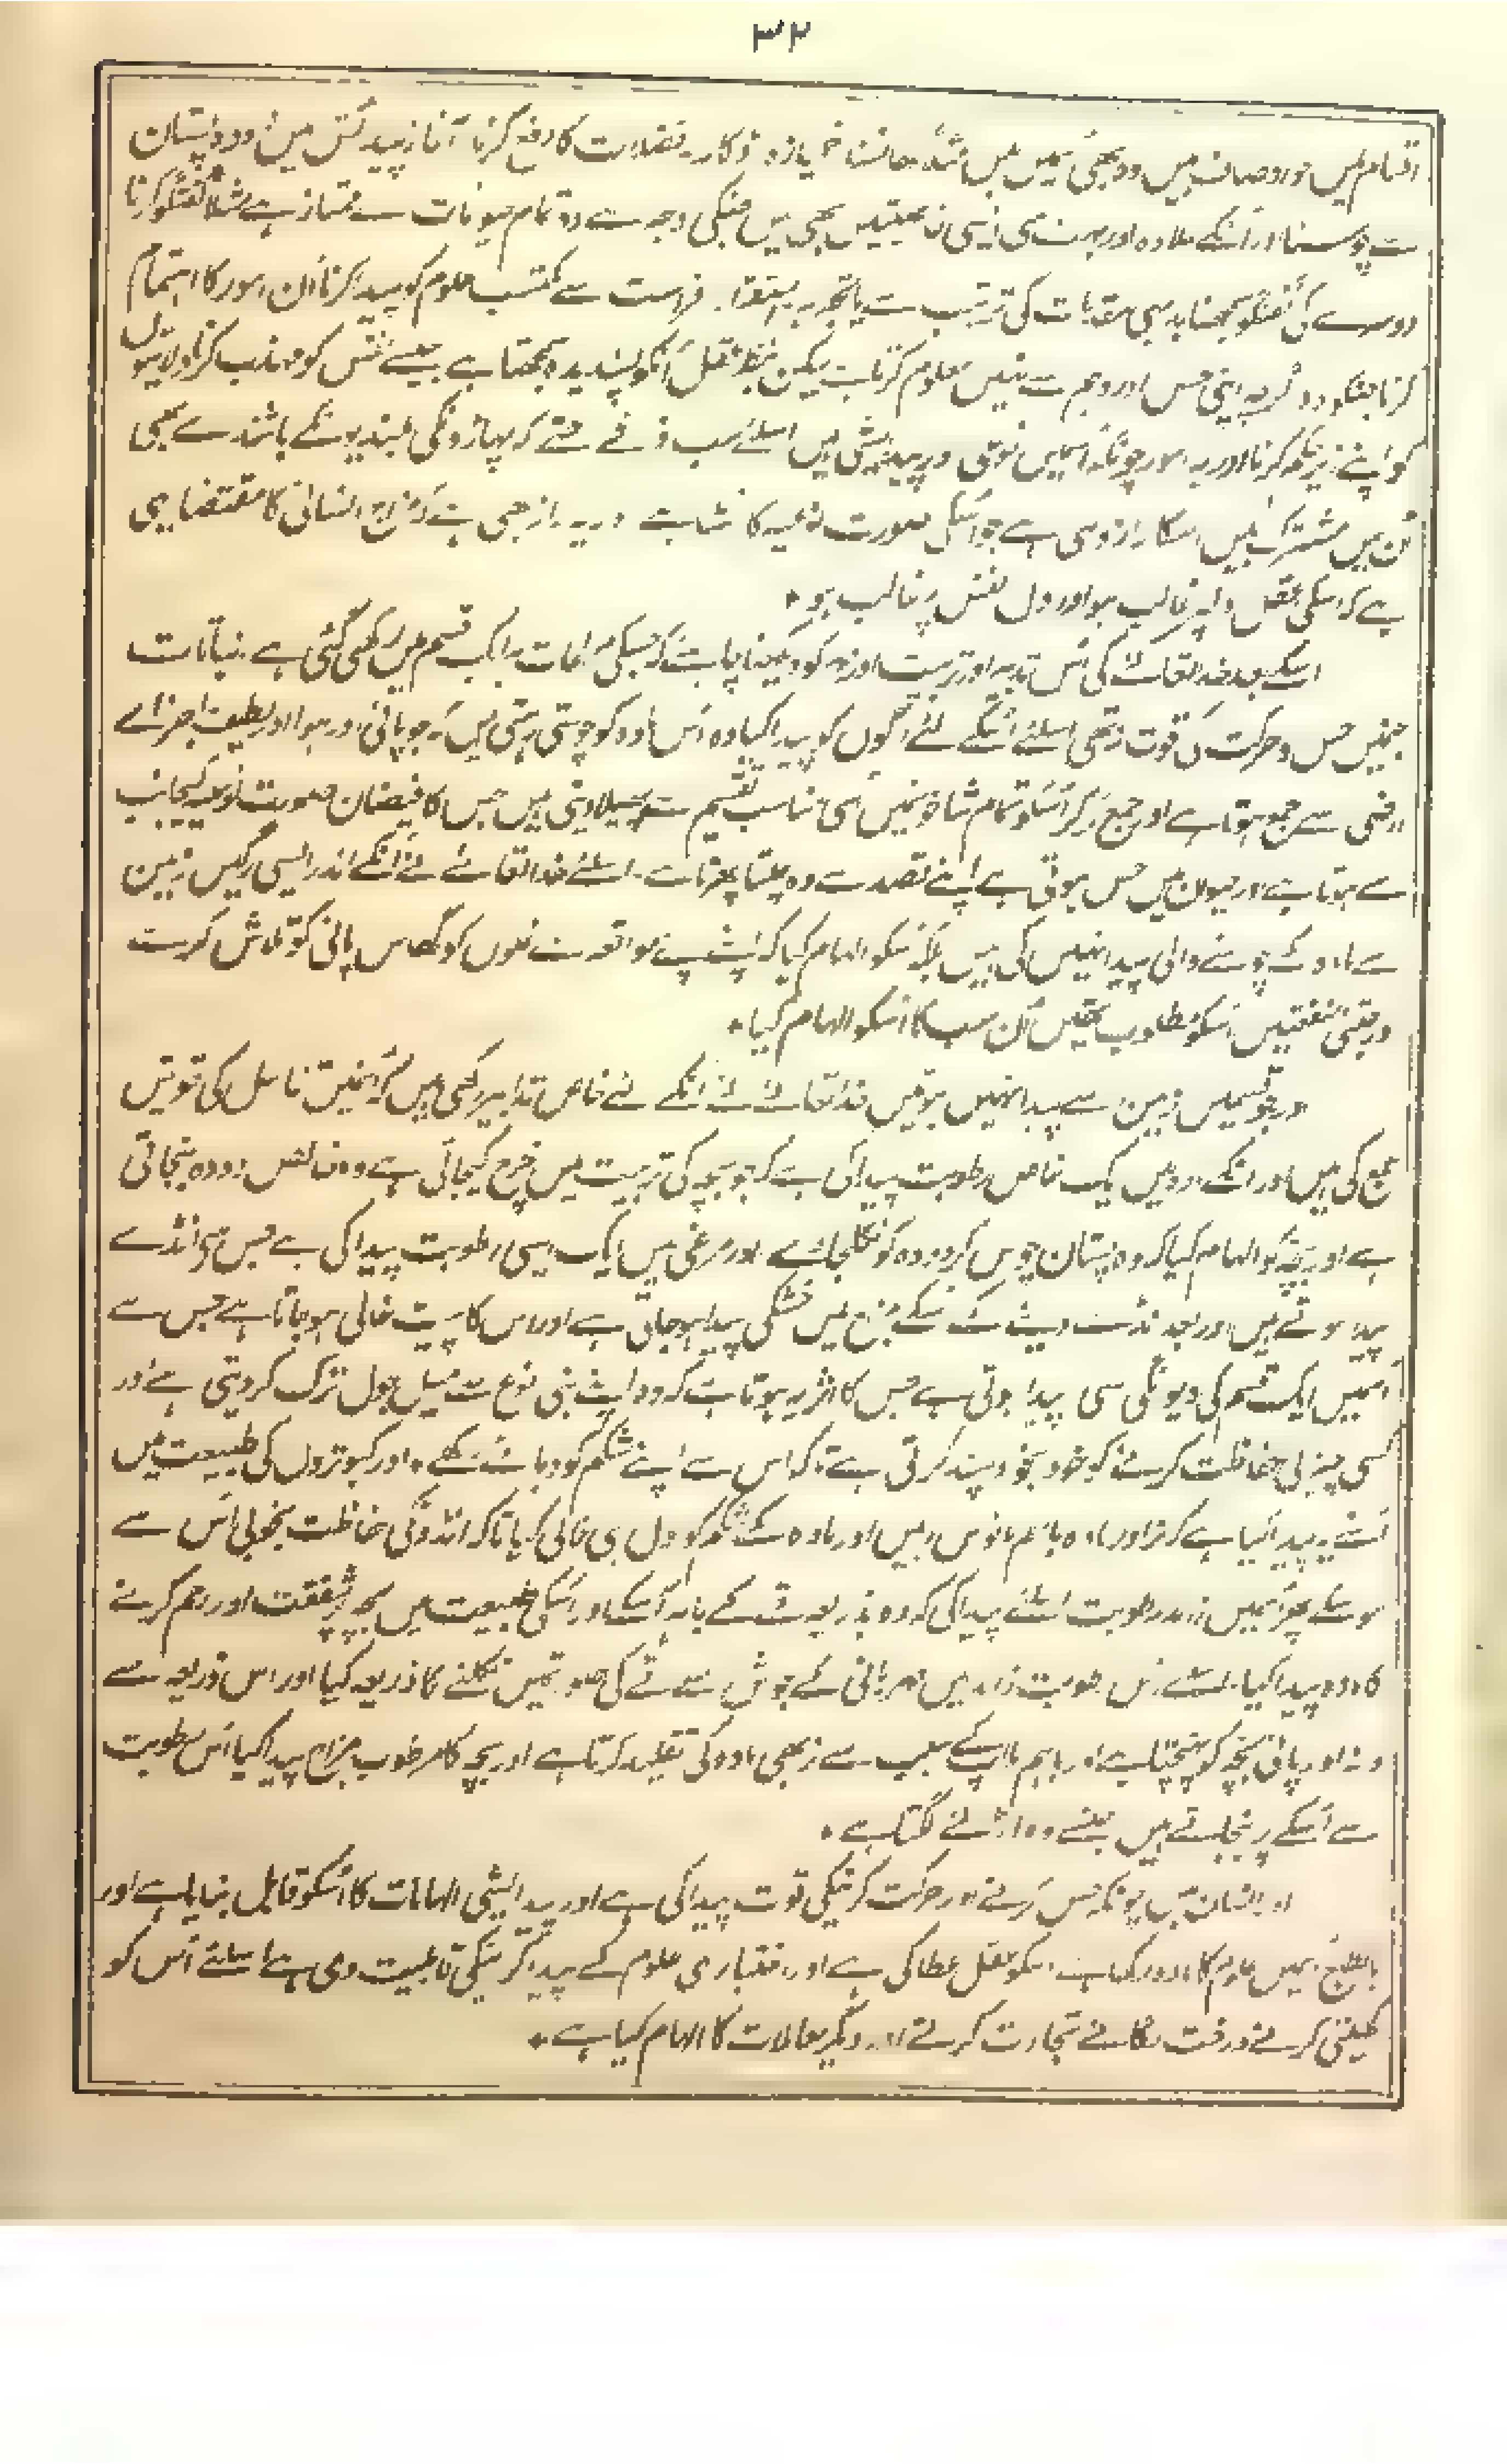 ۳۲
اقسام میں جو اوصاف ہیں وہ بھی ہمیں ہیں مثلاً کھانسنا خمیازہ ڈکار۔ فضلات کا دفع کرنا آغاز پیدائش میں اور پستان
سے چوسنا اور اُنکے علاوہ اور بہت سی ایسی خاصیتیں بھی ہیں جنکی وجہ سے وہ تمام حیوانات سے ممتاز ہے مثلاً گفتگو کرنا
دوسرے کی گفتگو سمجھنا بدیہی مقدمات کی ترتیب سے یا تجربہ استقراء فہمت سے کتسب علوم کو پیدا کرنا اُن امور کا اہتمام
کرنا جنکو وہ گرچہ اپنی حس اور وہم سے نہیں معلوم کرتا ہے لیکن بنظر عقل اُنکو پسندیدہ سمجھتا ہے جیسے نفس کو مہذب کرنا ولایتوں
کو اپنے زیر حکم کرنا اور یہ امور چونکہ اسمیں نوعی اور پیدائشی ہیں اسلئے سب فرقے حتے کہ پہاڑونکی بلندیونکے باشندے بھی
اُن میں مشترک ہیں اسکا راز وہی ہے جو اسکی صورت نوعیہ کا منشا ہے اور یہ راز یہی ہے کہ مزاج انسانی کا مقتضا یہی
ہے کہ اسکی عقل دل پر غالب ہو اور دل نفس پر غالب ہو ٭
اسکے بعد خدا تعالےٰ کی اُس تدبیر اور تربیت اور کو دیکھنا چاہئے کہ جسکی مراعات ہر ایک قسم میں رکھی گئی ہے، نباتات
جنمیں حس و حرکت کی قوت نہ تھی اسلئے اُنکے لئے رگوں کو پیدا کیا وہ اُس مادہ کو چوستی رہتی ہیں کہ جو پانی اور ہوا اور لطیف اجزائے
ارضی سے جمع ہوتا ہے اور جمع کرکر اُسکو تمام شاخونمیں اسی مناسب تقسیم سے پھیلا دیتی ہیں جس کا فیضان صورت نوعیہ کیجانب
سے ہوتا ہے اور حیوان میں حس ہوتی ہے اپنے قصد سے وہ چلتا پھرتا ہے۔ اسلئے خدا تعالےٰ نے اُنکے اندر ایسی رگیں زمین
سے مادہ کے چوسنے والی پیدا نہیں کی ہیں بلکہ اُسکو الہام کیا کہ اپنے اپنے موقعوں سے غلوں کو گھاس پانی کو تلاش کرے
اور جتنی منفعتیں اُسکو مطلوب تھیں اُن سب کا اُسکو الہام کیا٭
اور جو قسمیں زمین سے پیدا نہیں ہوتیں خدا تعالےٰ نے اُنکے لئے خاص تدابیر رکھی ہیں کہ اُنمیں تناسل کی قوتیں
جمع کی ہیں اور اُنکے مادومیں ایک خاص رطوبت پیدا کی ہے کہ جو بچہ کی تربیت میں خرچ کیجاتی ہے وہ خالص دودہ بنجاتی
ہے اور بچہ کو الہام کیا کہ وہ پستان چوس کر دودہ کو نگل جائے اور مرغی میں ایک ایسی رطوبت پیدا کی ہے جس سے انڈے
پیدا ہوتے ہیں اور بعد انڈے دینے کے اُسکے مزاج میں خشکی پیدا ہوجاتی ہے اور اس کا پیٹ خالی ہو جاتا ہے جس سے
اُسمیں ایک قسم کی دیوانگی سی پیدا ہوتی ہے جس کا اثر یہ ہوتا ہے کہ وہ اپنے بنی نوع سے میل جول ترک کر دیتی ہے اور
کسی چیز کی حفاظت کرنے کو خود بخود پسند کرتی ہے تاکہ اس سے اپنے شکم کو دبائے رکھے ٭ اور کبوتروں کی طبیعت میں
اُسنے یہ پیدا کیا ہے کہ نر اور مادہ باہم مانوس رہیں اور مادہ کے شکم کو دل ہی خالی کر دیا تاکہ انڈونکی حفاظت بخوبی اُس سے
ہوسکے پھر اُسمیں زائد رطوبت اسلئے پیدا کی کہ وہ بذریعہ قے کے باہر آسکے اور اسکی طبیعت میں بچہ پر شفقت اور رحم کرنے
کا مادہ پیدا کیا۔ اسلئے اُس رطوبت زائد میں مہربانی کے جوش سے قے کی صورتمیں نکلنے کا ذریعہ کیا اور اس ذریعہ سے
دانہ اور پانی بچہ کو پہنچتا ہے اور باہم ملاپ کے سبب سے نر بھی مادہ کی تقلید کرتا ہے اور بچہ کا مرطوب مزاج پیدا کیا اُس رطوبت
سے اُسکے پر بنجاتے ہیں جنسے وہ اڑنے لگتا ہے ٭
اور انسان میں چونکہ حس کرنے اور حرکت کرنیکی قوت پیدا کی ہے اور پیدائشی الہامات کا اُسکو قابل بنایا ہے اور
بالطبع اُسمیں علوم کا مادہ رکھا ہے اُسکو عقل عطا کی ہے اور اختیاری علوم کے پیدا کرنیکی قابلیت دی ہے اسلئے اُس کو
کھیتی کرنے درخت لگانے تجارت کرنے اور دیگر معاملات کا الہام کیا ہے ٭